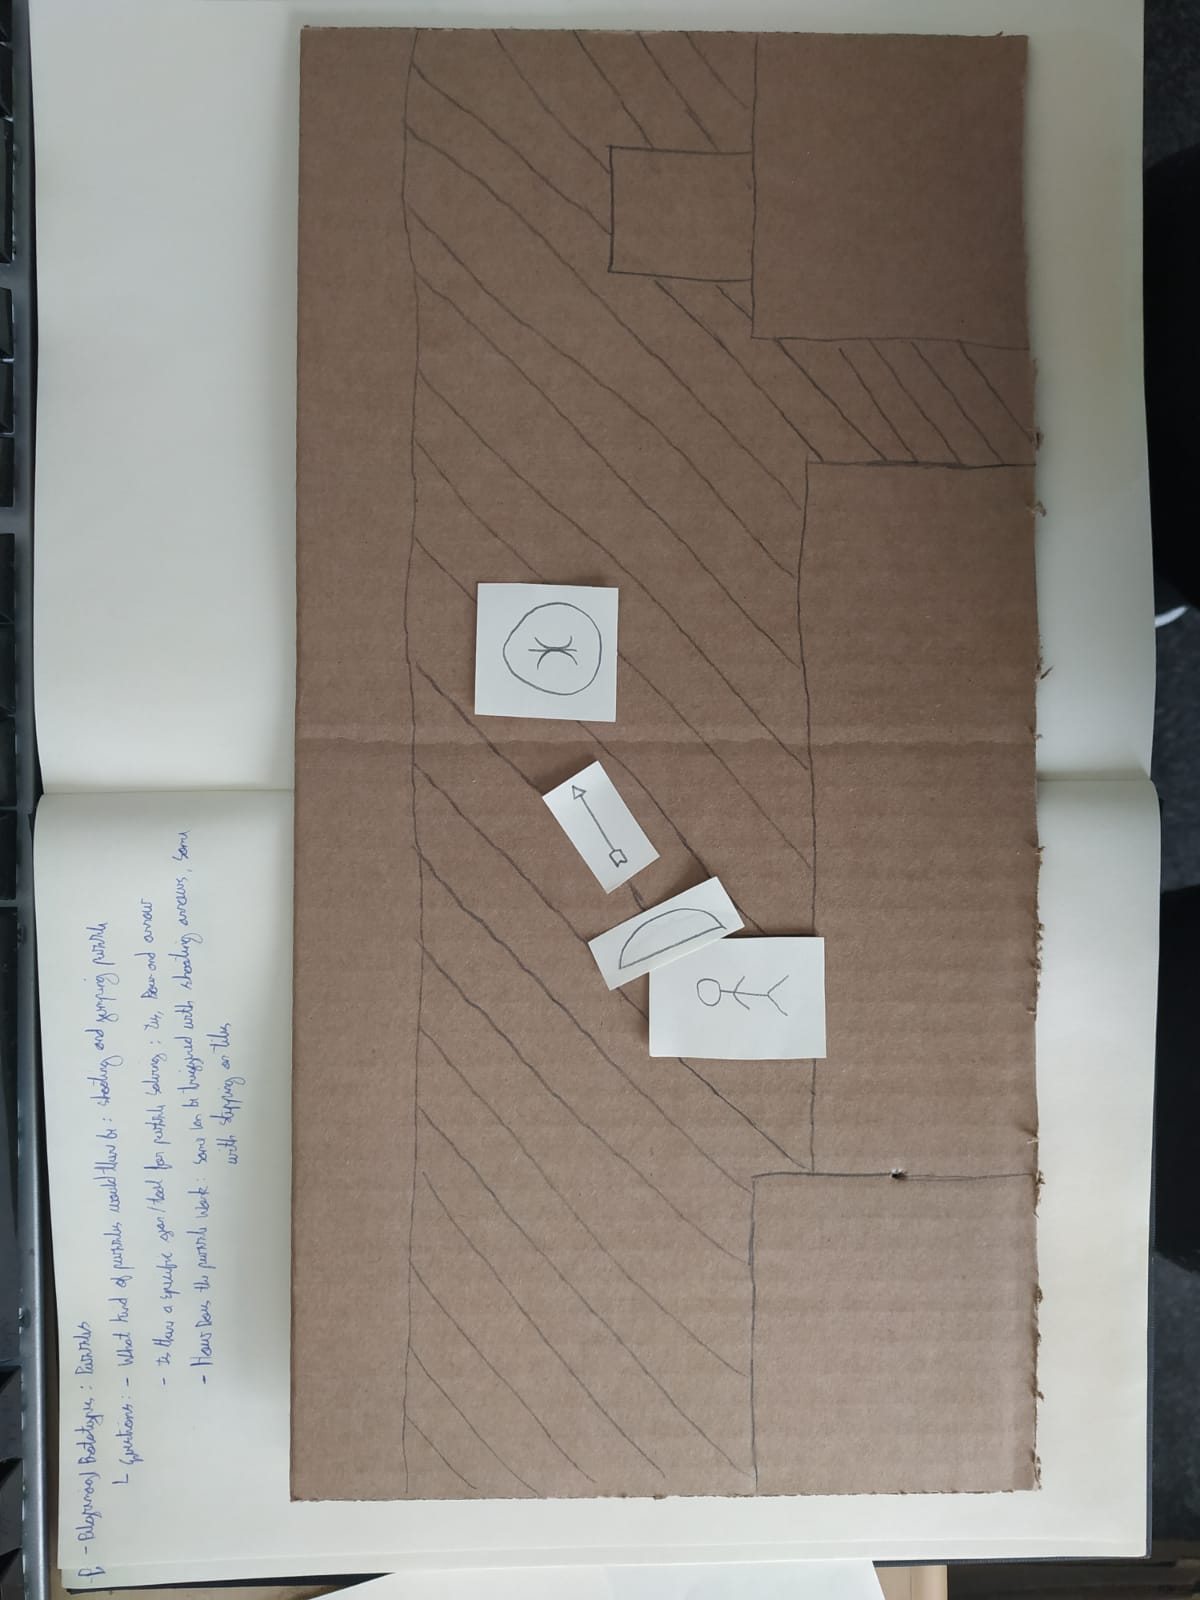 - Pilgrimag Prototypes : Puzzles
Questions : - What kind of puzzles would there be : shooting and jumping puzzle
- Is there a specific gear/tool for puzzle solving : Yes, Bow and arrow
- How Does the puzzle work : some can be triggered with shooting arrows, some
with stepping on tiles